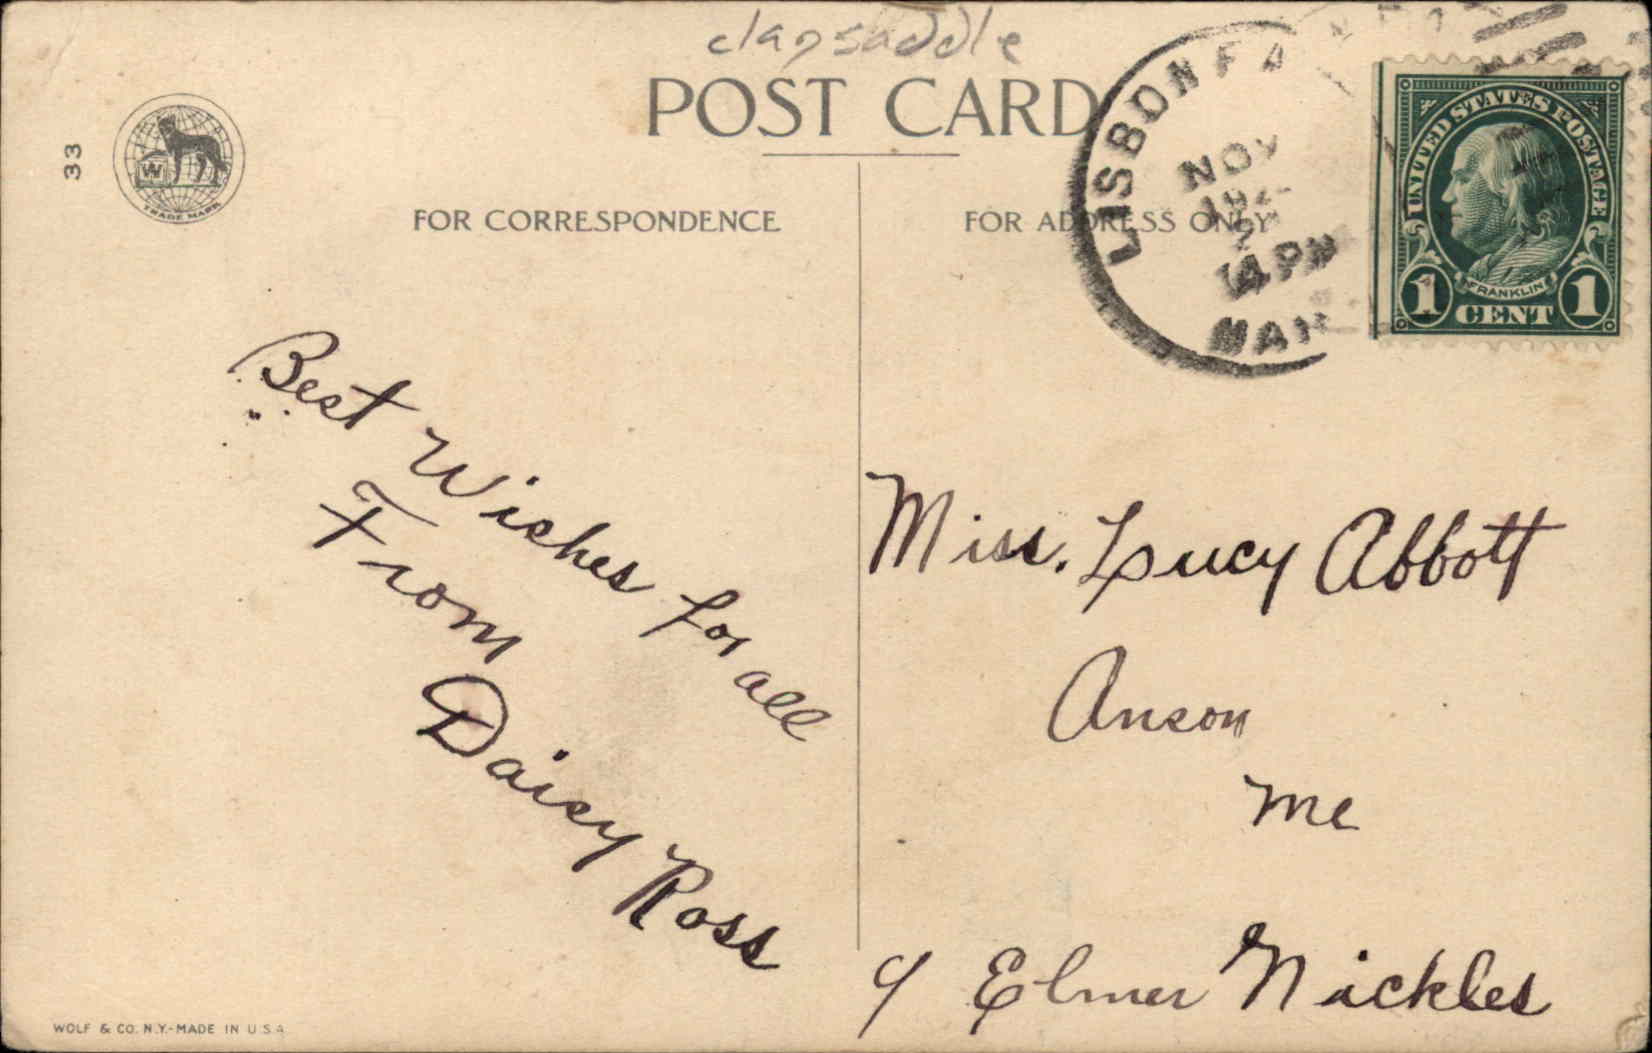 clapsaddle
POST CARD
33
W
TRADE MARK
FOR CORRESPONDENCE
FOR ADDRESS ONLY
LISBON FA
NOV
4 PM
UNITED STATES POSTAGE
FRANKLIN
1 CENT 1
Best Wishes for all
From
Daisy Ross
Miss. Lucy Abbott
Anson
Me
Elmer Nickles
WOLF & CO. N.Y.-MADE IN U.S.A